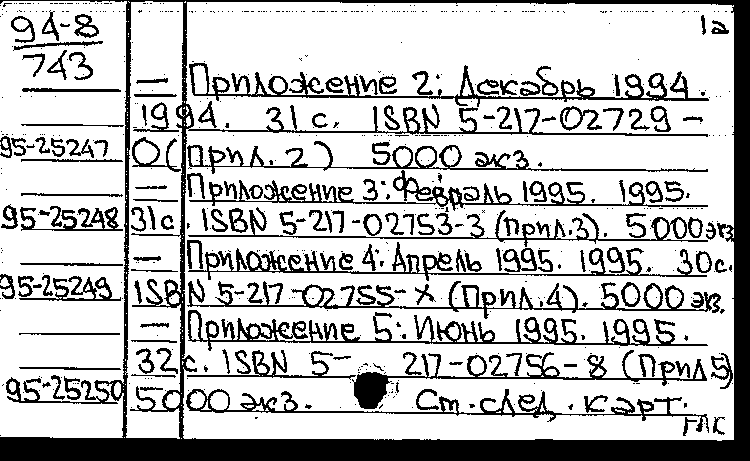 94-8
743
1а
— Приложение 2: Декабрь 1994.
1994. 31 с. ISBN 5-217-02729-
95-25247
0 (Прил. 2) 5000 экз.
— Приложение 3: Февраль 1995. 1995.
95-25248 31 с. ISBN 5-217-02753-3 (Прил.3). 5000 экз
— Приложение 4: Апрель 1995. 1995. 30 с.
95-25249 ISBN 5-217-02755-X (Прил.4). 5000 экз.
— Приложение 5: Июнь 1995. 1995.
32 с. ISBN 5- 217-02756-8 (Прил.5)
95-25250 5000 экз. См. след. карт.
ГПК